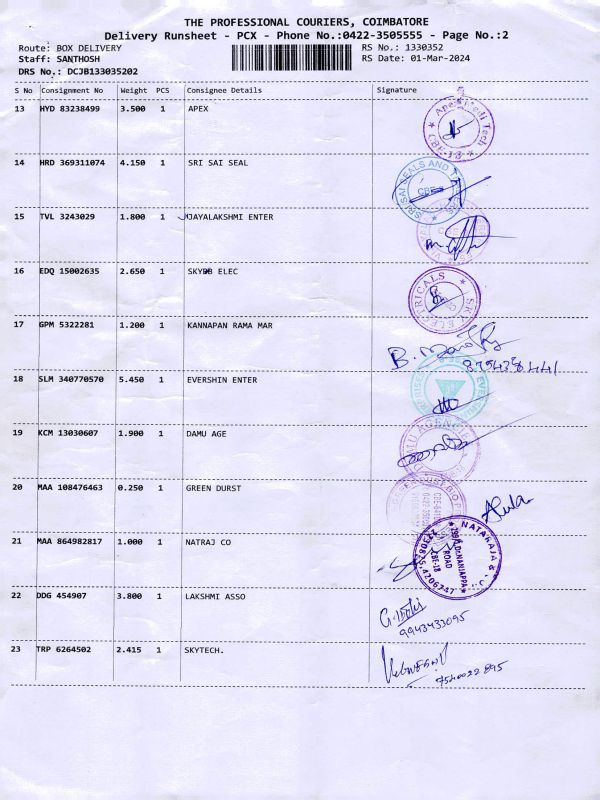 THE PROFESSIONAL COURIERS, COIMBATORE
Delivery Runsheet - PCX - Phone No.:0422-3505555 - Page No.:2
Route: BOX DELIVERY RS No.: 1330352
Staff: SANTHOSH RS Date: 01-Mar-2024
DRS No.: DCJB133035202
S No Consignment No Weight PCS Consignee Details Signature
13 HYD 83238499 3.500 1 APEX
14 HRD 369311074 4.150 1 SRI SAI SEAL
SRI SAI SEALS AND
CBE
15 TVL 3243029 1.800 1 JAYALAKSHMI ENTER
16 EDQ 15002635 2.650 1 SKYBB ELEC
SKY ELECTRICALS
17 GPM 5322281 1.200 1 KANNAPAN RAMA MAR
18 SLM 340770570 5.450 1 EVERSHIN ENTER
19 KCM 13030607 1.900 1 DAMU AGE
DAMU AGENCIES
20 MAA 108476463 0.250 1 GREEN DURST
21 MAA 864982817 1.000 1 NATRAJ CO
NATARAJA &
ROAD
CBE-18
22 DDG 454907 3.800 1 LAKSHMI ASSO
9943433095
23 TRP 6264502 2.415 1 SKYTECH.